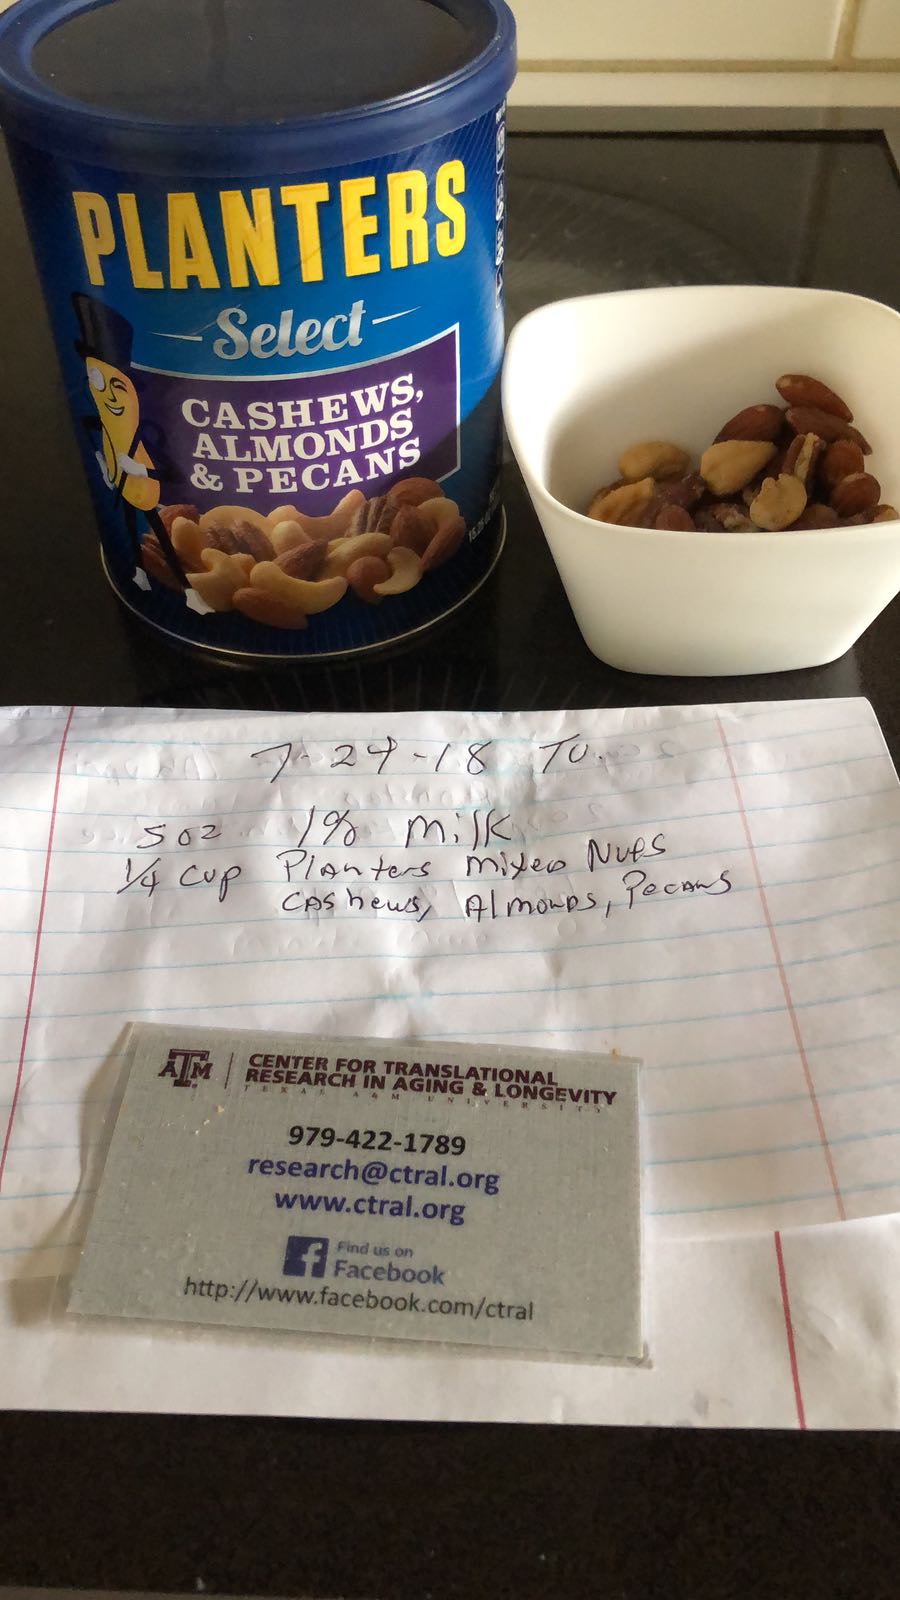 PLANTERS
Select
CASHEWS,
ALMONDS
& PECANS
7-24-18 TU.
5 oz 1% Milk
1/4 cup Planters Mixed Nuts
Cashews, Almonds, Pecans
ATM
CENTER FOR TRANSLATIONAL
RESEARCH IN AGING & LONGEVITY
TEXAS A&M UNIVERSITY
979-422-1789
research@ctral.org
www.ctral.org
f Find us on
Facebook
http://www.facebook.com/ctral